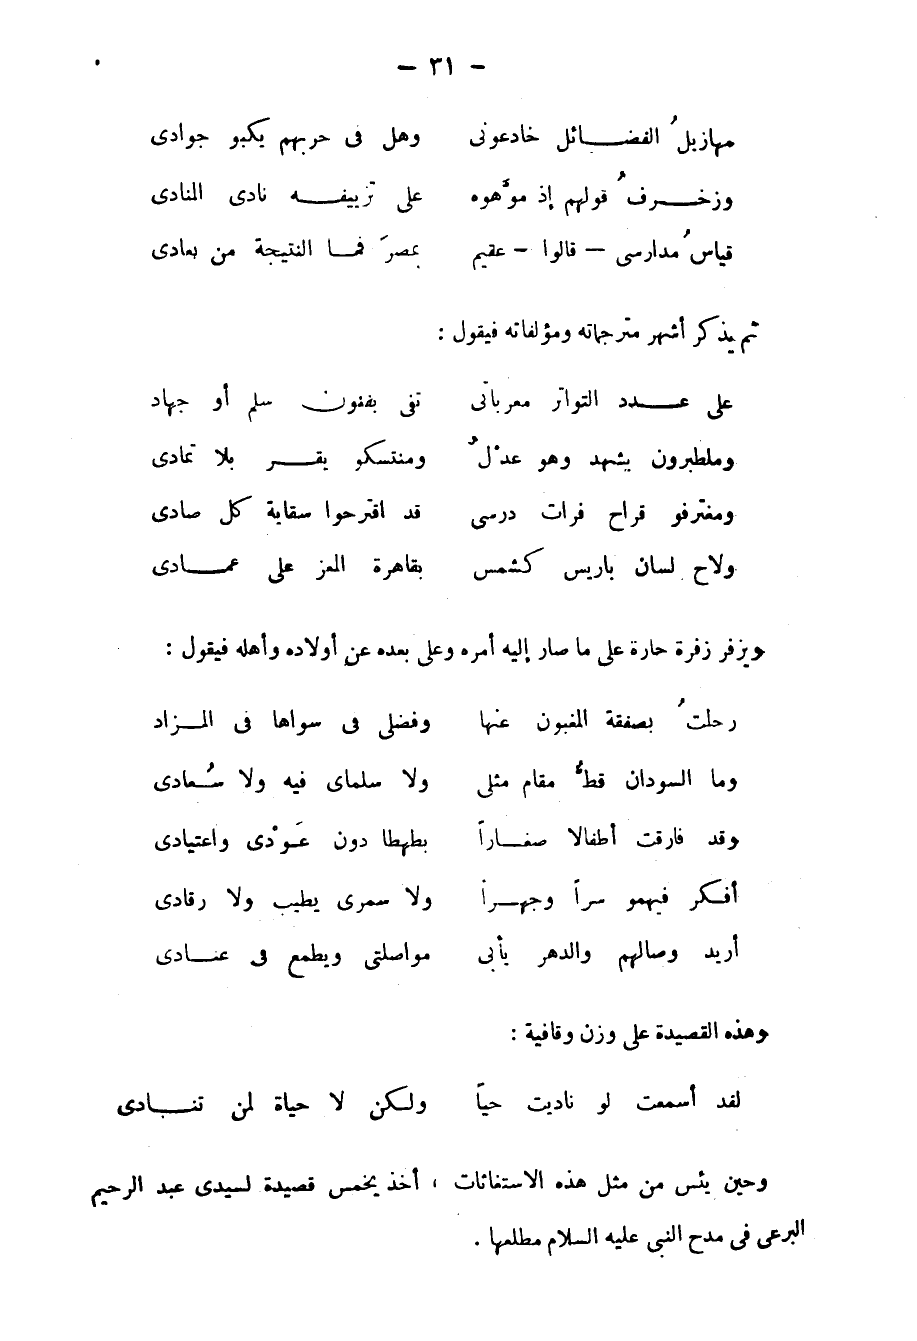 — ٣١ —
مهازيلُ الفضائل خادعونى وهل فى حربهم يكبو جوادى
وزخرفُ قولهم إذ موَّهوه على تزييفه نادى المنادى
قياسُ مدارسى — قالوا — عقيم بمصرَ فما النتيجة من بعادى
ثم يذكر أشهر مترجماته ومؤلفاته فيقول :
على عدد التواتر معرباتى تفى بفنون سلم أو جهاد
وملطبرون يشهد وهو عدْلُ ومنتسكو يقر بلا تمادى
ومغترفو قراح فرات درسى قد اقترحوا سقاية كل صادى
ولاح لسان باريس كشمس بقاهرة المعز على عمادى
ويزفر زفرة حارة على ما صار إليه أمره وعلى بعده عن أولاده وأهله فيقول :
رحلتُ بصفقة المغبون عنها وفضلى فى سواها فى المزاد
وما السودان قطُّ مقام مثلى ولا سلماى فيه ولا سُعادى
وقد فارقت أطفالا صغاراً بطهطا دون عَوْدى واعتيادى
أفكر فيهمو سراً وجهراً ولا سمرى يطيب ولا رقادى
أريد وصالهم والدهر يأبى مواصلتى ويطمع فى عنادى
وهذه القصيدة على وزن وقافية :
لقد أسمعت لو ناديت حياً ولكن لا حياة لمن تنادى
وحين يئس من مثل هذه الاستغاثات ، أخذ يخمس قصيدة لسيدى عبد الرحيم
البرعى فى مدح النبى عليه السلام مطلعها .